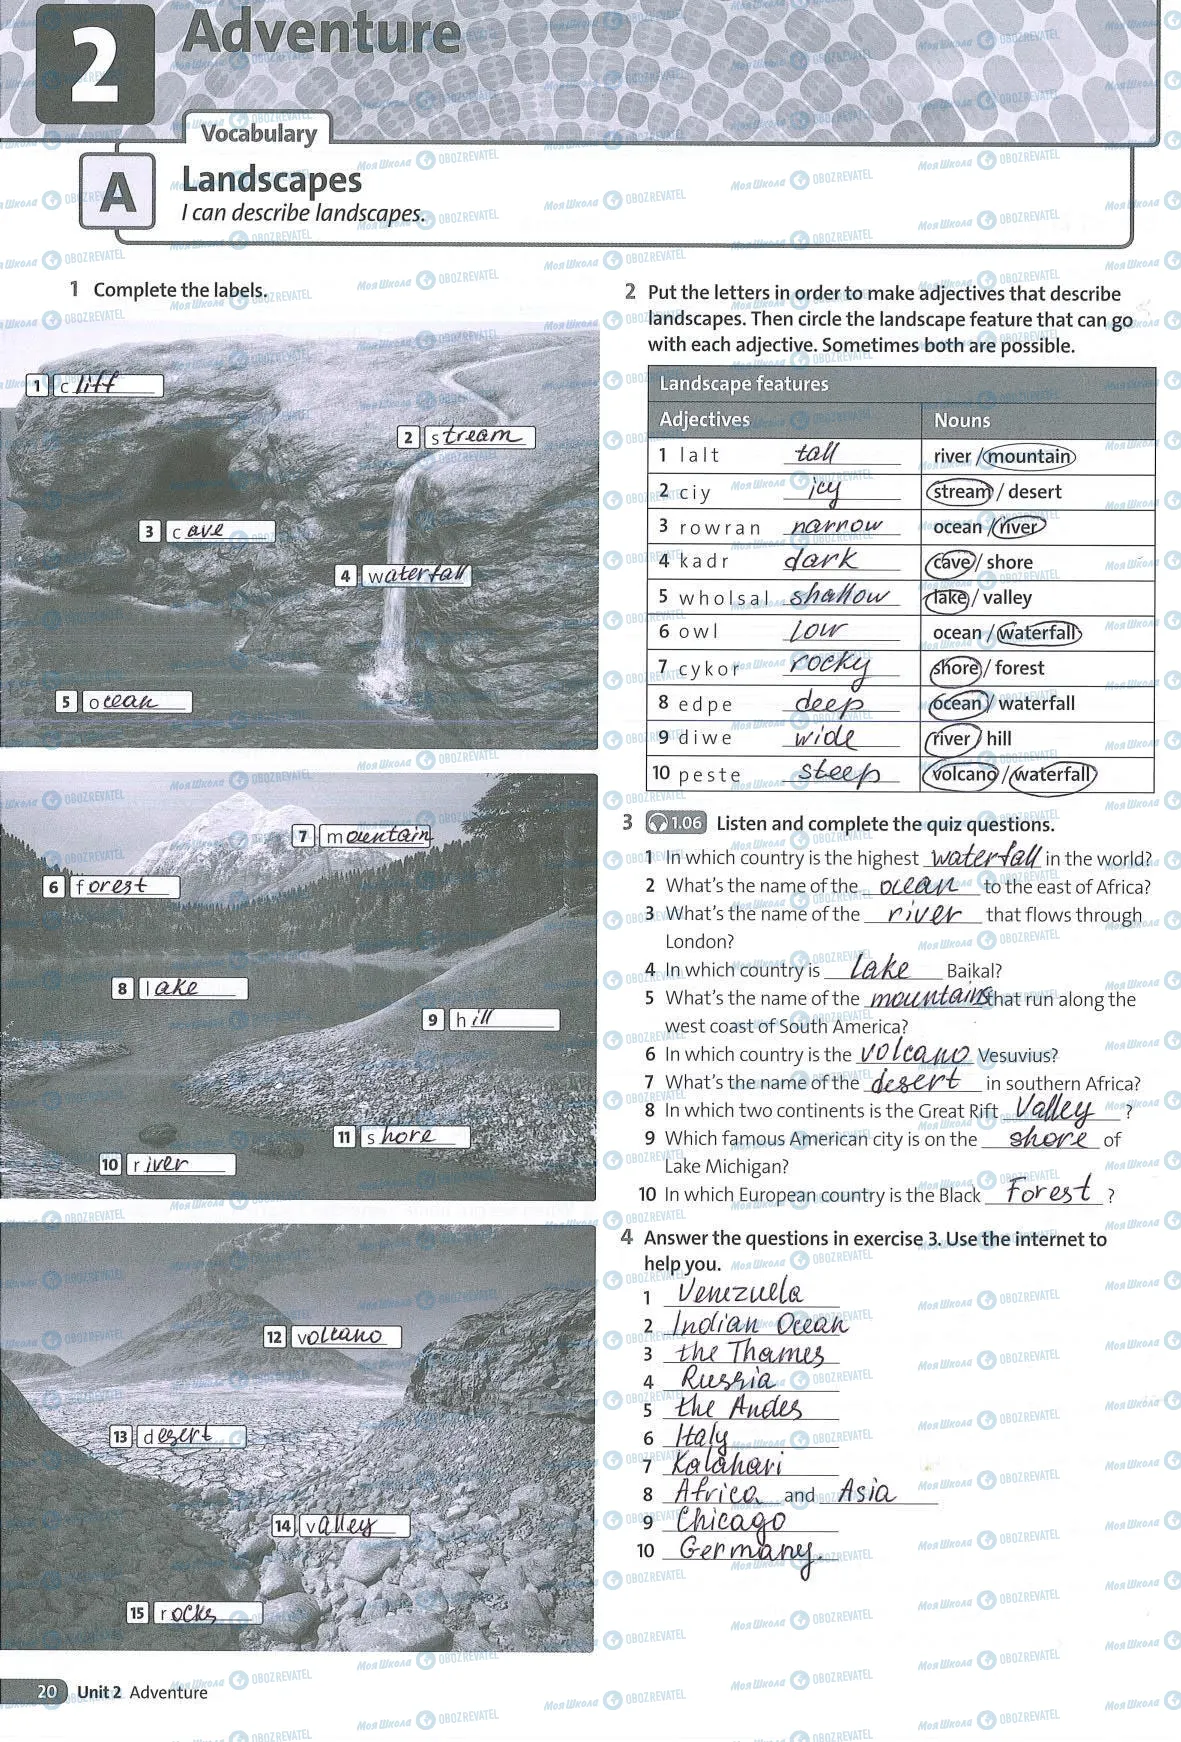 2
Adventure
Vocabulary
A
Landscapes
I can describe landscapes.
1 Complete the labels.
1 cliff
2 stream
3 cave
4 waterfall
5 ocean
7 mountain
6 forest
8 lake
9 hill
11 shore
10 river
12 volcano
13 desert
14 valley
15 rocks
2 Put the letters in order to make adjectives that describe
landscapes. Then circle the landscape feature that can go
with each adjective. Sometimes both are possible.
Landscape features
Adjectives Nouns
1 l a l t tall river / mountain
2 c i y icy stream / desert
3 r o w r a n narrow ocean / river
4 k a d r dark cave / shore
5 w h o l s a l shallow lake / valley
6 o w l low ocean / waterfall
7 c y k o r rocky shore / forest
8 e d p e deep ocean / waterfall
9 d i w e wide river / hill
10 p e s t e steep volcano / waterfall
3 1.06 Listen and complete the quiz questions.
1 In which country is the highest waterfall in the world?
2 What's the name of the ocean to the east of Africa?
3 What's the name of the river that flows through
London?
4 In which country is lake Baikal?
5 What's the name of the mountains that run along the
west coast of South America?
6 In which country is the volcano Vesuvius?
7 What's the name of the desert in southern Africa?
8 In which two continents is the Great Rift Valley ?
9 Which famous American city is on the shore of
Lake Michigan?
10 In which European country is the Black Forest ?
4 Answer the questions in exercise 3. Use the internet to
help you.
1 Venezuela
2 Indian Ocean
3 the Thames
4 Russia
5 the Andes
6 Italy
7 Kalahari
8 Africa and Asia
9 Chicago
10 Germany.
20 Unit 2 Adventure
Моя Школа OBOZREVATEL